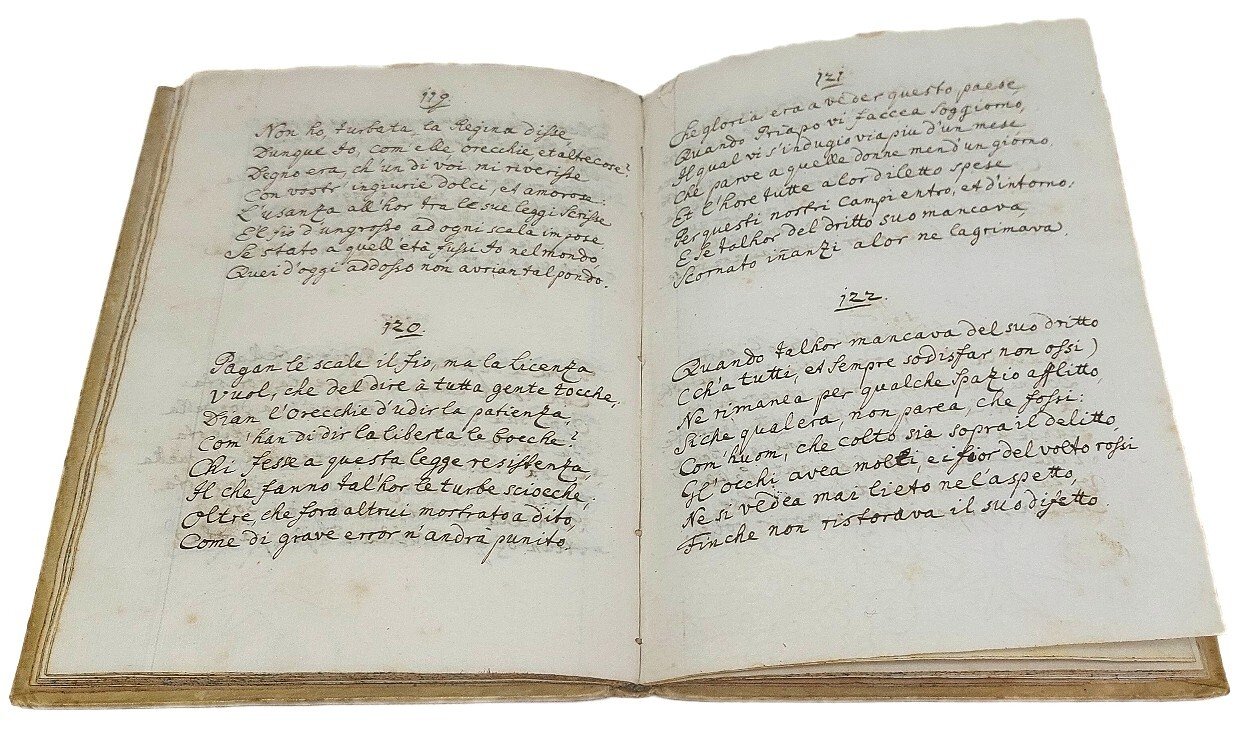 119
Non ho, turbata, la Regina disse
Dunque Io, com'elle orecchie, et altre cose?
Degno era, ch'un di voi mi riverisse
Con vostr'ingiurie dolci, et amorose:
L'usanza all'hor tra le sue leggi scrisse
E'l fio d'un grosso ad ogni scala impose
Se stato a quell'età fussi Io nel mondo
Quei d'oggi addosso non avrian tal pondo.
120.
Pagan le scale il fio, ma la licenza
Vuol, che del dire à tutta gente tocche,
Dian l'Orecchie d'udir la patienza,
Com'han di dir la liberta le bocche?
Chi fesse a questa legge resistenza,
Il che fanno talhor le turbe sciocche;
Oltre, che fora altrui mostrato a dito,
Come di grave error n'andrà punito.
121
Che gloria era a veder questo paese,
Quando Priapo vi faccea soggiorno,
Il qual vi s'indugio via piu d'un mese
Che parve a quelle donne men d'un giorno,
Et l'hore tutte a lor diletto spese
Per questi nostri campi entro, et d'intorno;
E se talhor del dritto suo mancava,
Scornato iñanzi a lor ne lagrimava.
122.
Quando talhor mancava del suo dritto
(ch'a tutti, et sempre sodisfar non ossi)
Ne rimanea per qualche spazio afflitto,
Si che qual era, non parea, che fossi:
Com'huom, che colto sia sopra il delitto,
Gl'occhi avea molli, e i fior del volto rossi
Ne si vedea mai lieto ne l'aspetto,
Finche non ristorava il suo difetto.